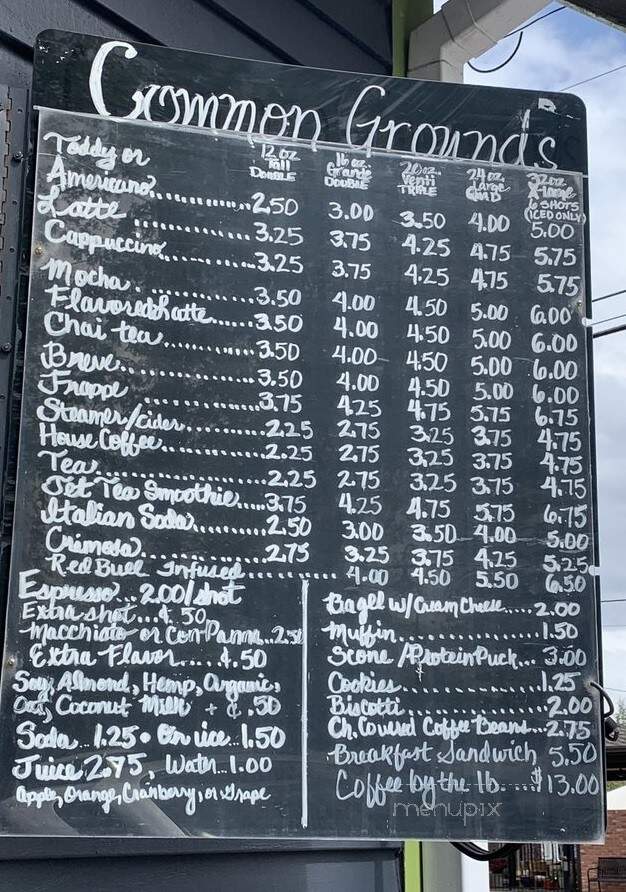 Common Grounds
12 oz. Tall DOUBLE 16 oz. Grande DOUBLE 20 oz. Venti TRIPLE 24 oz. Large QUAD 32 oz. X-Large 6 SHOTS (ICED ONLY)
Toddy or
Americano..............2.50 3.00 3.50 4.00 5.00
Latte..............3.25 3.75 4.25 4.75 5.75
Cappuccino..............3.25 3.75 4.25 4.75 5.75
Mocha..............3.50 4.00 4.50 5.00 6.00
Flavored Latte........3.50 4.00 4.50 5.00 6.00
Chai tea............3.50 4.00 4.50 5.00 6.00
Breve..............3.50 4.00 4.50 5.00 6.00
Frappe..............3.75 4.25 4.75 5.75 6.75
Steamer/cider........2.25 2.75 3.25 3.75 4.75
House Coffee..........2.25 2.75 3.25 3.75 4.75
Tea..................2.25 2.75 3.25 3.75 4.75
Jet Tea Smoothie....3.75 4.25 4.75 5.75 6.75
Italian Soda.........2.50 3.00 3.50 4.00 5.00
Crimosa..............2.75 3.25 3.75 4.25 5.25
Red Bull Infused.............. 4.00 4.50 5.50 6.50
Espresso...2.00/shot
Extra shot...$.50
Macchiato or Con Panna..2.50
Extra Flavor....$.50
Soy, Almond, Hemp, Organic,
Oat, Coconut Milk + $.50
Soda..1.25 • On ice..1.50
Juice 2.75, Water...1.00
Apple, Orange, Cranberry, or Grape
Bagel w/Cream Cheese.....2.00
Muffin..................1.50
Scone/Protein Puck...3.00
Cookies.................1.25
Biscotti................2.00
Ch. Covered Coffee Beans...2.75
Breakfast Sandwich 5.50
Coffee by the lb.....$13.00
menupix